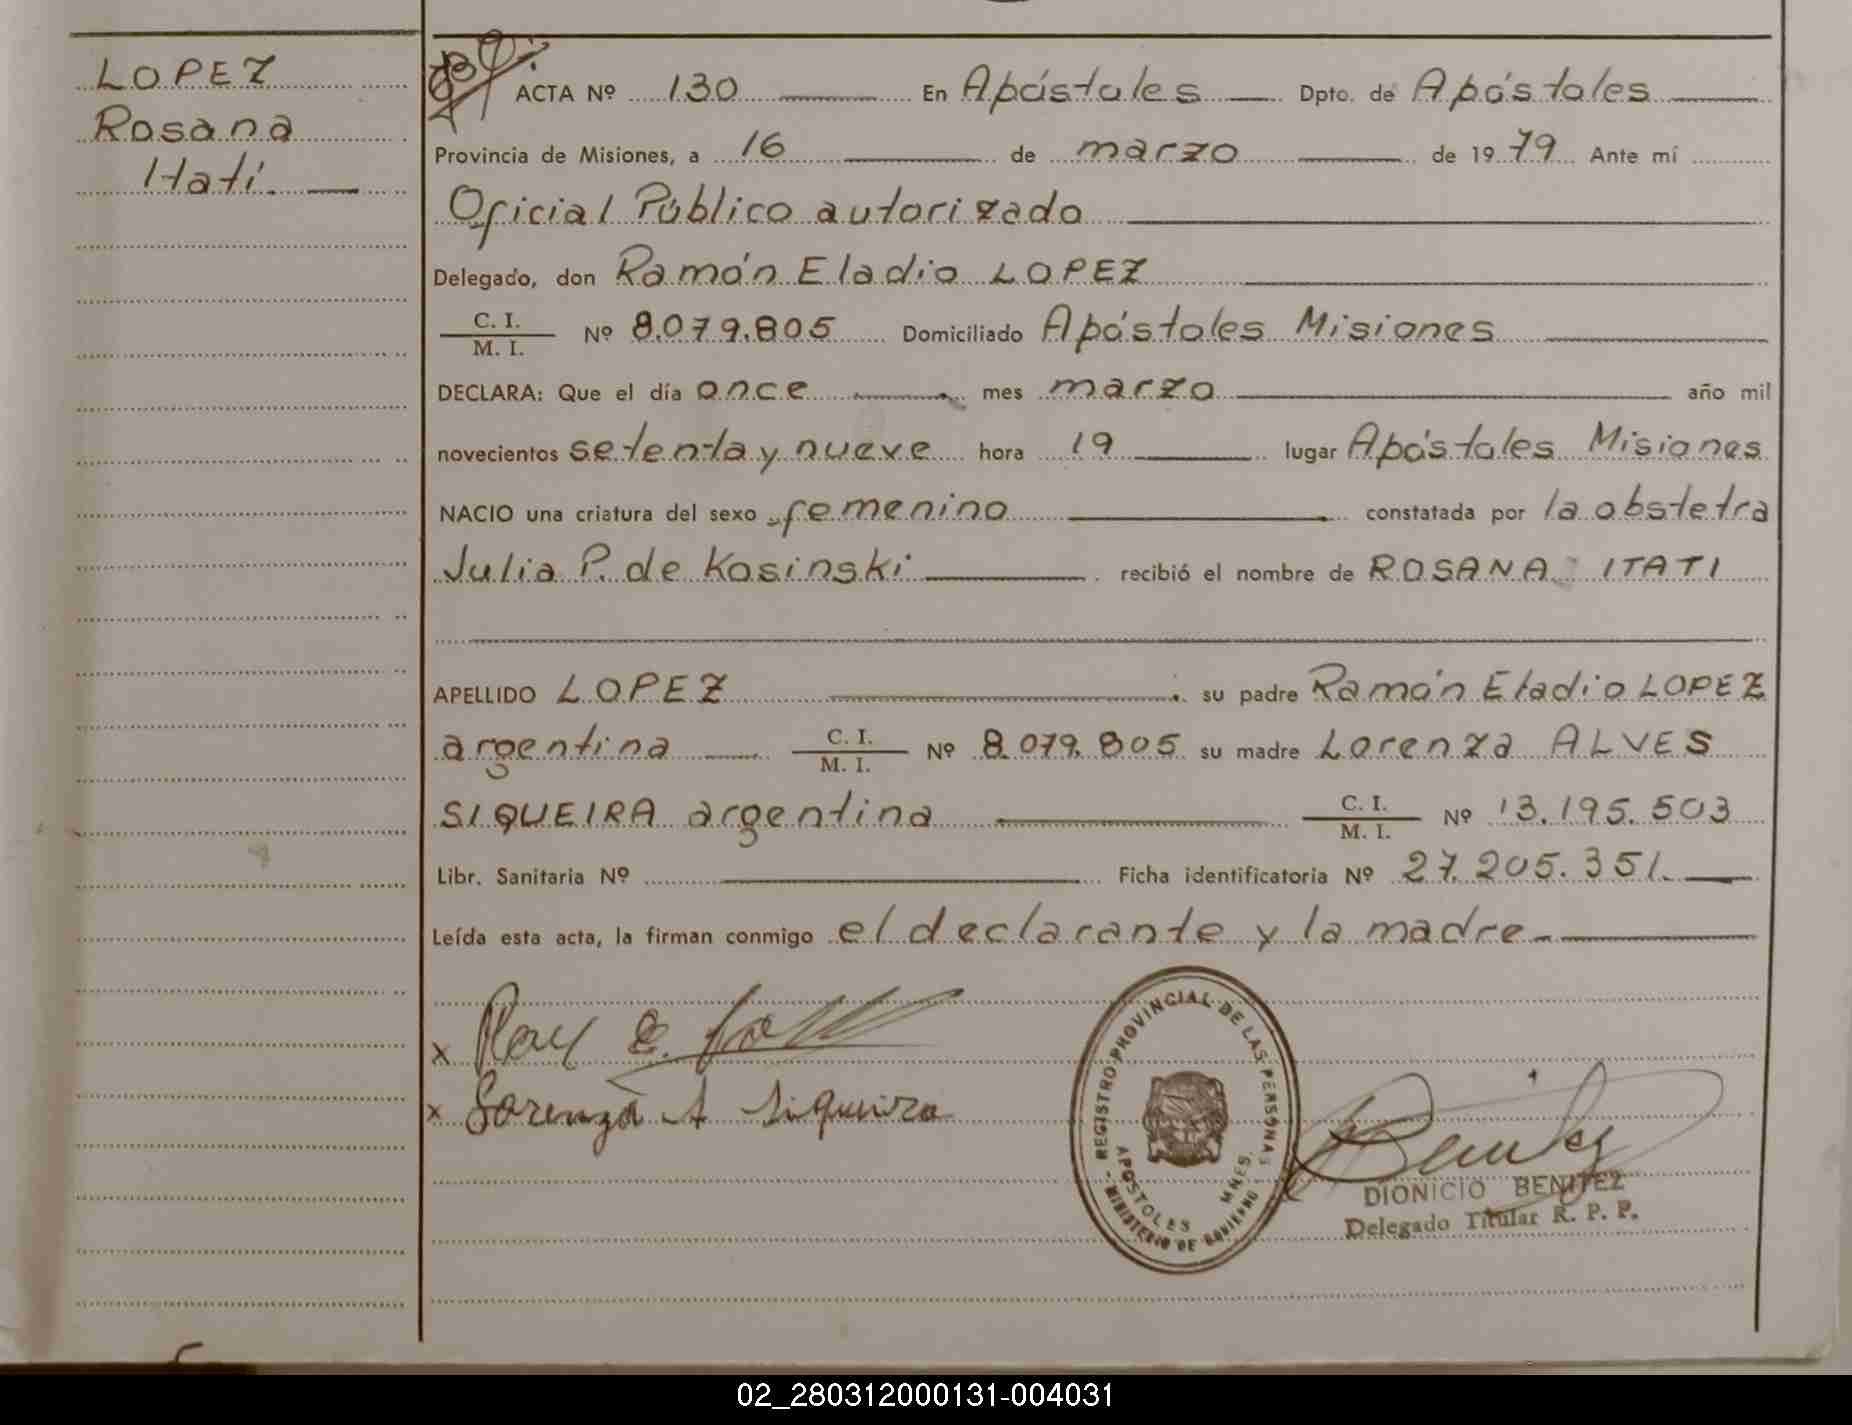 LOPEZ
Rosana
Itatí.
ACTA Nº 130 En Apóstoles Dpto. de Apóstoles
Provincia de Misiones, a 16 de marzo de 1979 Ante mí
Oficial Público autorizado
Delegado, don Ramón Eladio LOPEZ
C. I.
M. I. Nº 8.079.805 Domiciliado Apóstoles Misiones
DECLARA: Que el día once mes marzo año mil
novecientos setenta y nueve hora 19 lugar Apóstoles Misiones
NACIO una criatura del sexo femenino constatada por la obstetra
Julia P. de Kosinski recibió el nombre de ROSANA ITATI
APELLIDO LOPEZ su padre Ramón Eladio LOPEZ
argentina C. I. M. I. Nº 8.079.805 su madre Lorenza ALVES
SIQUEIRA argentina C. I. M. I. Nº 13.195.503
Libr. Sanitaria Nº Ficha identificatoria Nº 27.205.351.
Leída esta acta, la firman conmigo el declarante y la madre
x
x Lorenza A Siqueira
REGISTRO PROVINCIAL DE LAS PERSONAS
APOSTOLES MNES.
MINISTERIO DE GOBIERNO
Benitez
DIONICIO BENITEZ
Delegado Titular R. P. P.
02_280312000131-004031